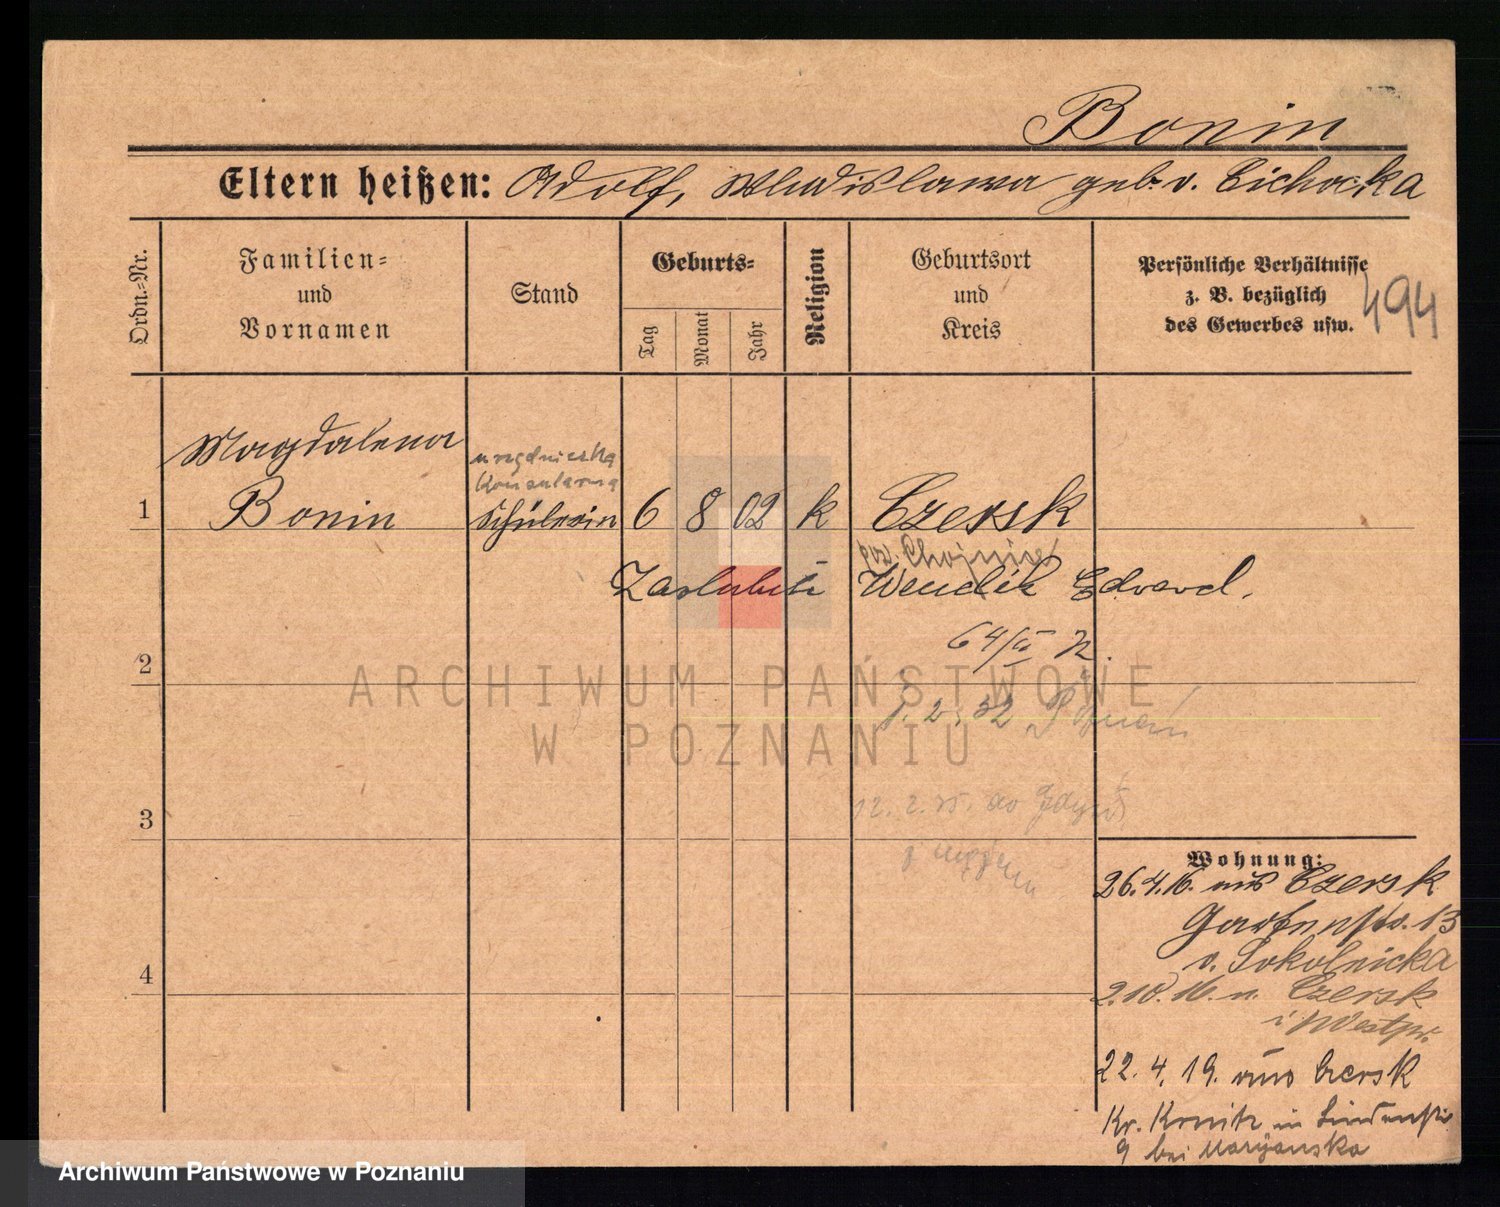 Bonin
Eltern heißen: Adolf, Wladislawa geb. v. Cichocka
Ordn.-Nr.
Familien-
und
Vornamen
Stand
Geburts-
Tag
Monat
Jahr
Religion
Geburtsort
und
Kreis
Persönliche Verhältnisse
z. B. bezüglich
des Gewerbes usw.
494
Magdalena
urzędniczka
Konsularna
1 Bonin Schülerin 6 8 02 k Czersk
pow. Chojnice
Zaślubiła Wendik Edward.
2
1. 2. 32 Poznań
3
12. 2. 35. do Gdyni
4
Wohnung:
26.4.16. aus Czersk
Gartenstr. 13
v. Sokolnicka
2.10.16. n. Czersk
i Westpr.
22. 4. 19. aus Czersk
Kr. Konitz in Lindenstr
9 bei Maryańska
ARCHIWUM PAŃSTWOWE
W POZNANIU
Archiwum Państwowe w Poznaniu